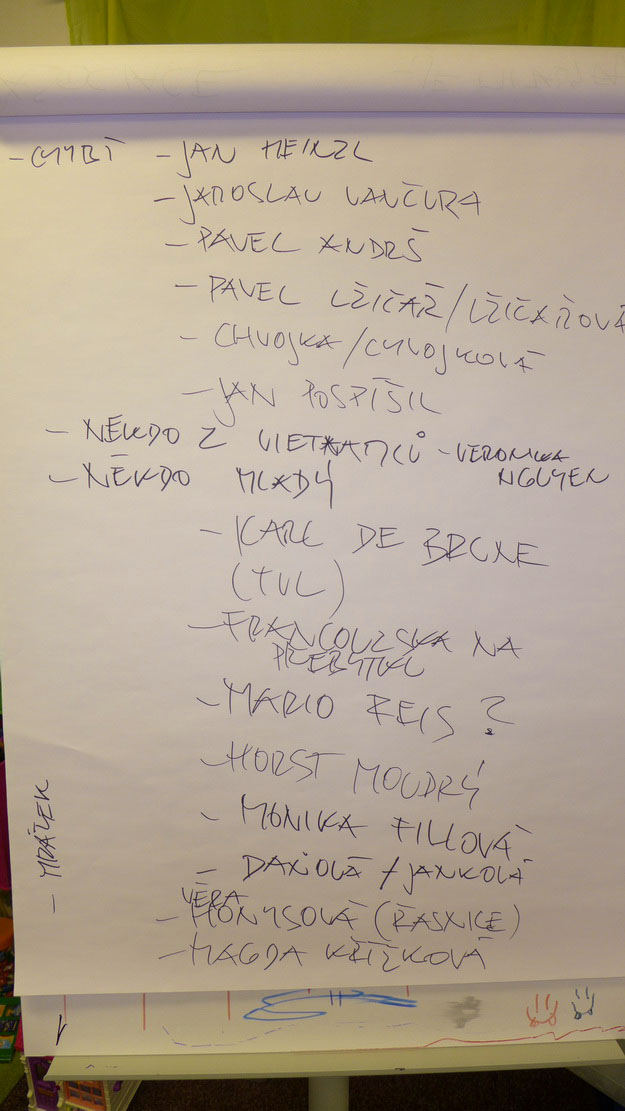 - CHYBÍ - JAN HEINZL
- JAROSLAV VANČURA
- PAVEL ANDRŠ
- PAVEL LŽIČAŘ/LŽIČAŘOVÁ
- CHVOJKA/CHVOJKOVÁ
- JAN POSPÍŠIL
- NĚKDO Z VIETNAMCŮ - VERONIKA NGUYEN
- NĚKDO MLADÝ
- KAREL DE BRUNE
(TUL)
- FRANCOUZSKA NA
PŘEBYTKU
- MARIO REIS ?
- HORST MOUDRÝ
- MONIKA FILLOVÁ
- DAŇOVÁ / JANKOVÁ
VĚRA
- HONYSOVÁ (ŘASNICE)
- MAGDA KŘÍŽKOVÁ
- MRÁZEK